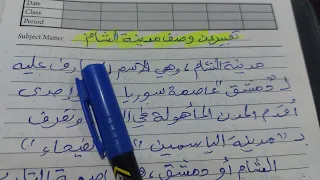 Date
Class
Period
Subject Matter:
تعبير عن وصف مدينة الشام
مدينة الشام، وهي الاسم المتعارف عليه
لـ"دمشق" عاصمة سوريا إحدى
أقدم المدن المأهولة في وتعرف
بـ"مدينة الياسمين" "الفيحاء"
الشام أو دمشق،